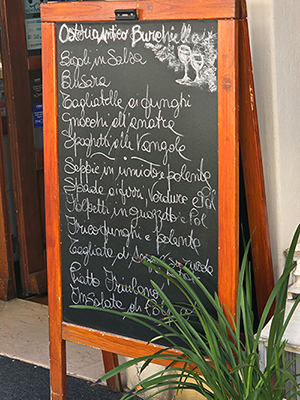 Osteria Antico Burchiello
Bigoli in Salsa
Busara
Tagliatelle ai funghi
Gnocchi all'anatra
Spaghetti alle Vongole
Seppie in umido e polenta
Spade ai ferri Verdure e Pol
Polpetti in guazzetto e Pol
Frico funghi e polenta
Tagliata di
Piatto Friulano
Insalata di